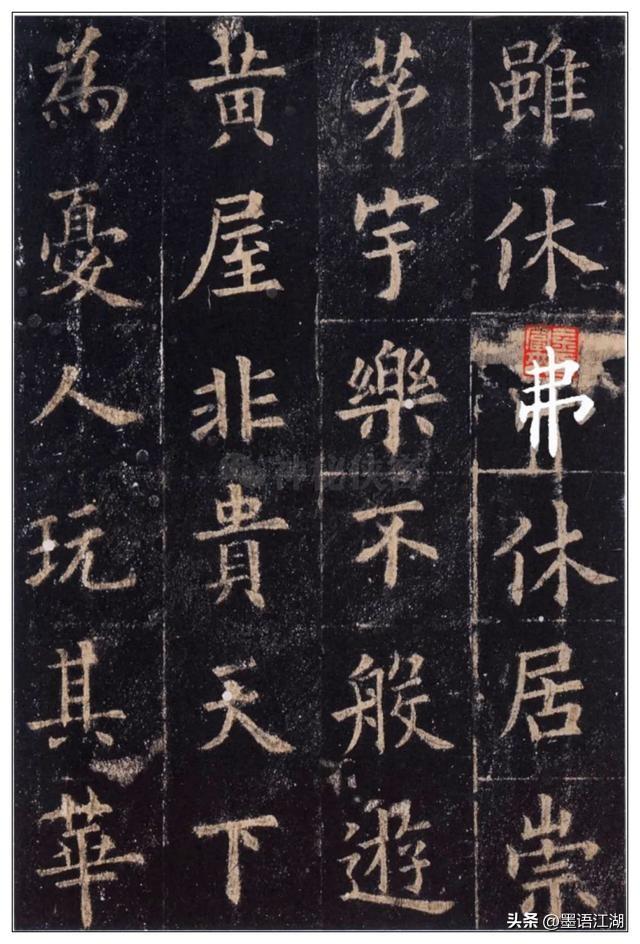 雖休弗休居崇
茅宇樂不般遊
黃屋非貴天下
為憂人玩其華
头条 @墨语江湖